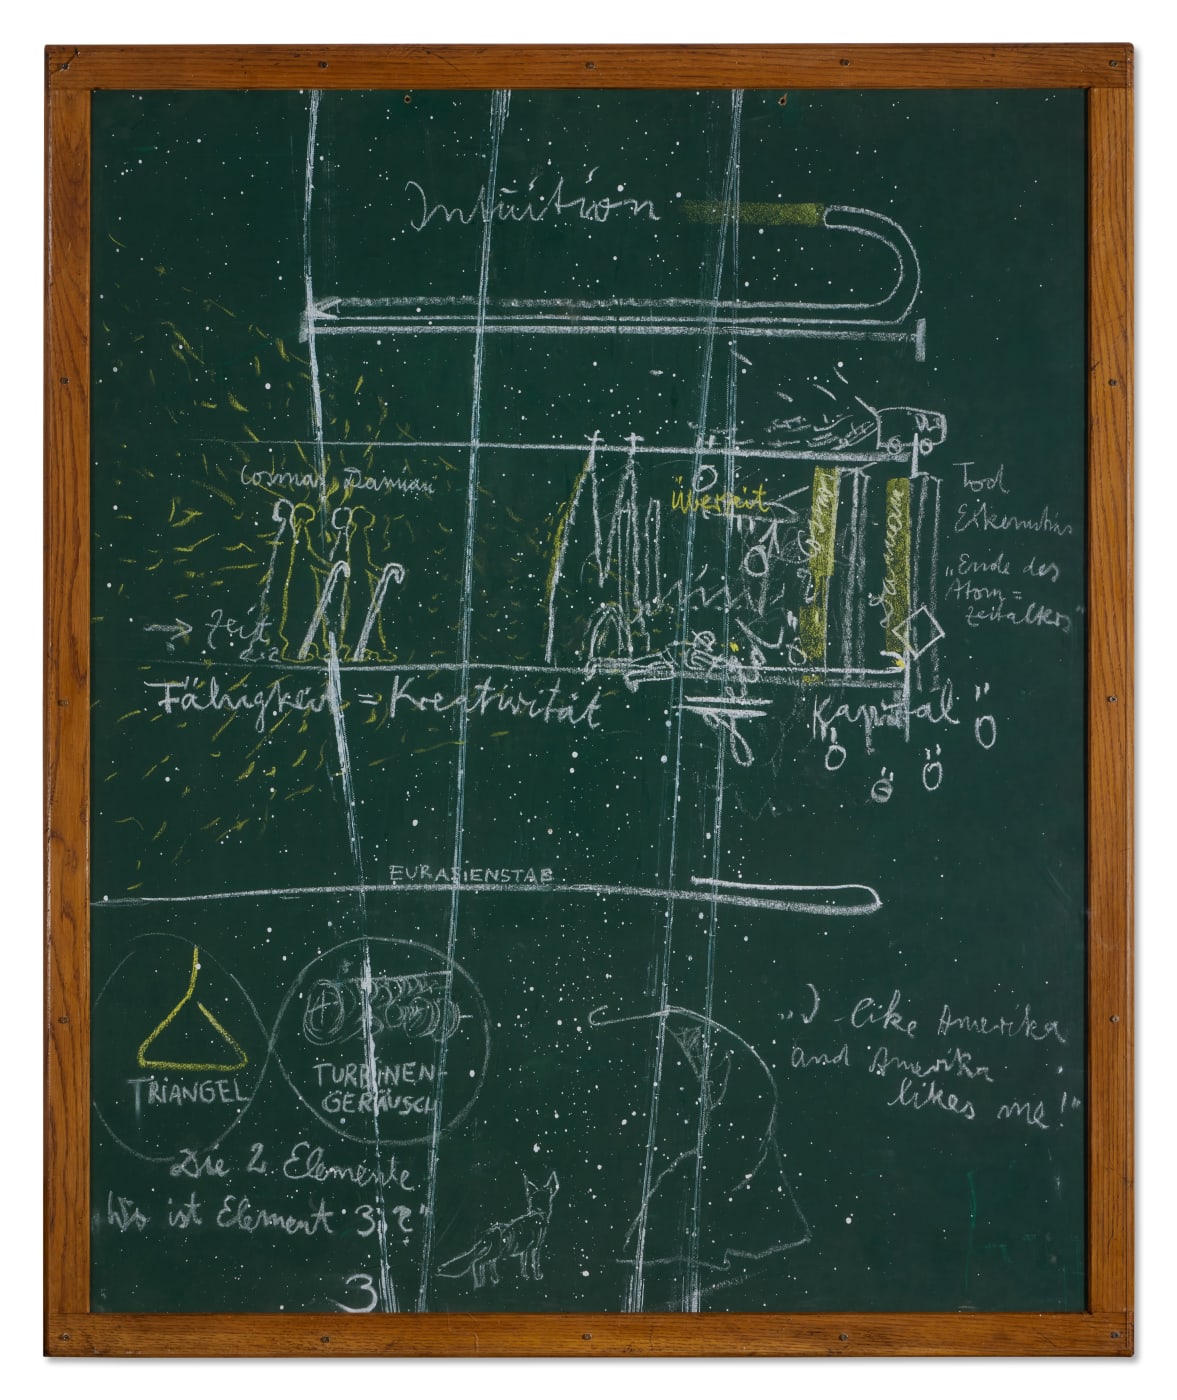 Intuition
Cosmas Damian
überzeit
Cosmas
Damian
Tod
Erkenntnis
„Ende des
Atom=
zeitalters"
→ Zeit
Fähigkeit = Kreativität
Kapital
EURASIENSTAB
TRIANGEL
TURBINEN-
GERÄUSCH
„I like Amerika
and Amerika
likes me!"
Die 2 Elemente
Wo ist Element 3?"
3